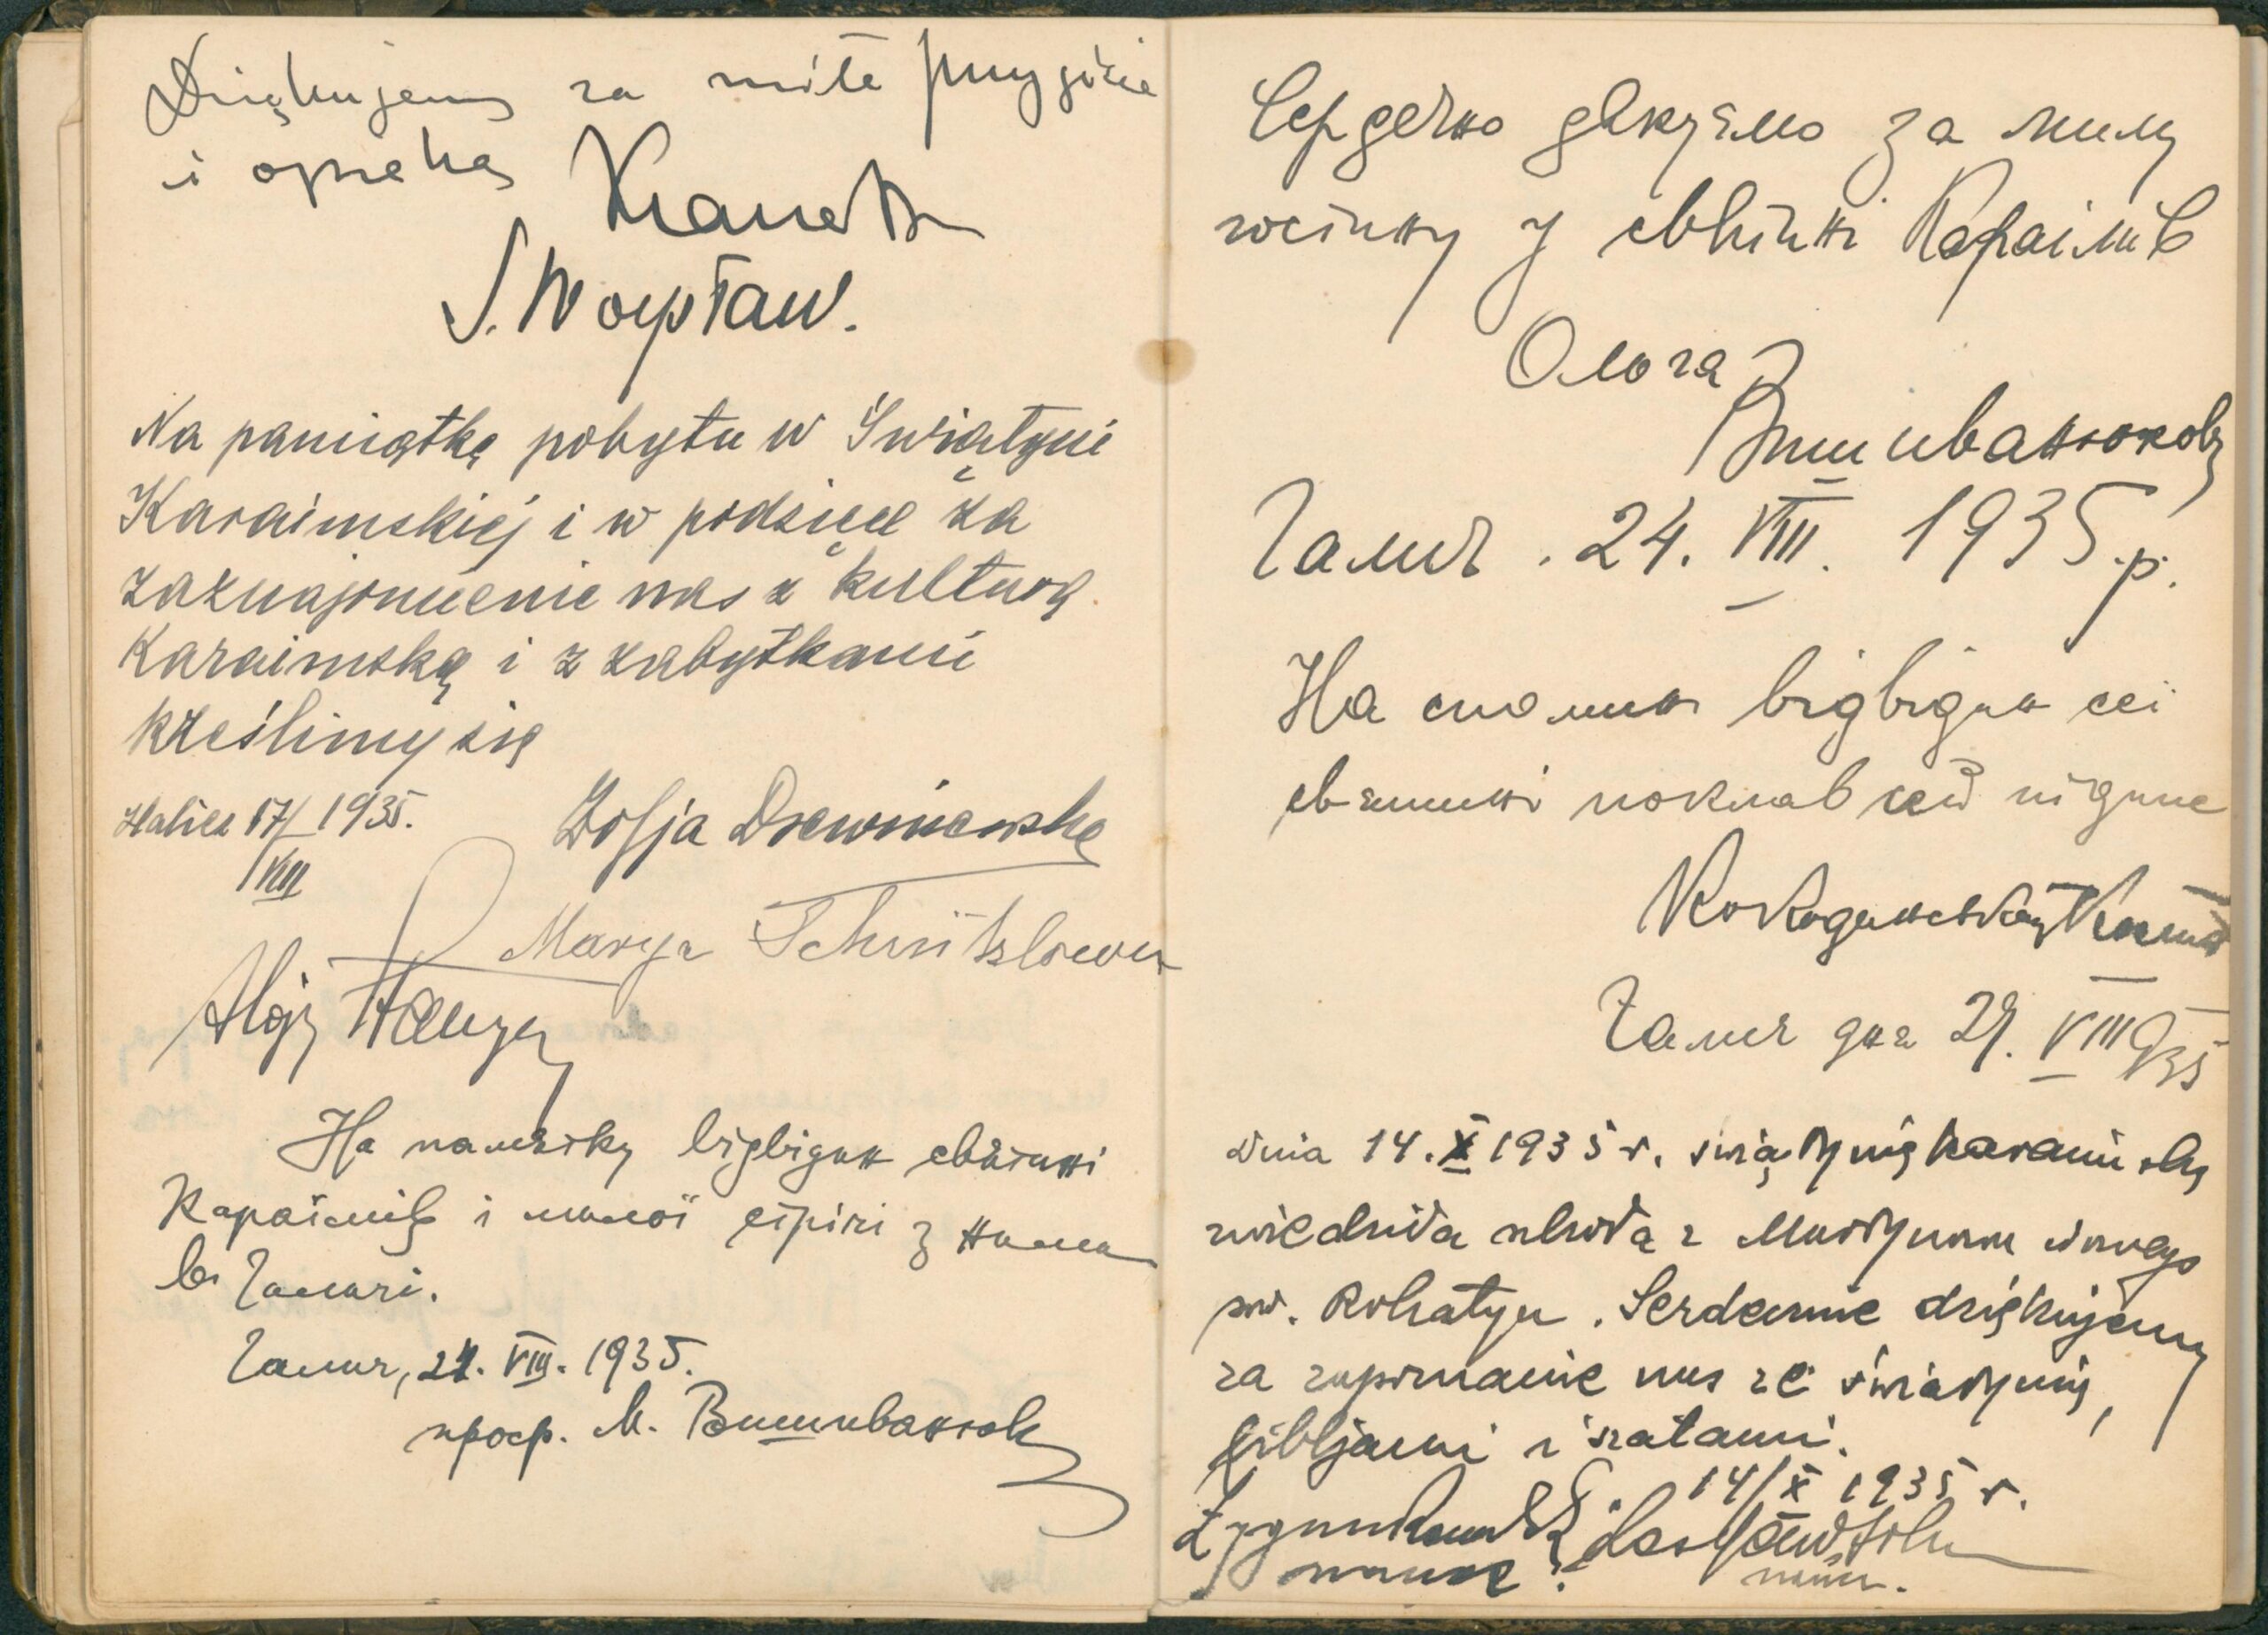 Dziękujemy za miłe przyjęcie
i opiekę
Na pamiątkę pobytu w Świątyni
Karaimskiej i w podzięce za
zaznajomienie nas z kulturą
Karaimską i z zabytkami
kreślimy się
Halicz 17/VIII 1935.
Zofja Drewniewska
Marya
Alojz
На памятку відвідин святині
Караїмів і милої стрічі з ними
в Галичі.
Галич, 24. VIII. 1935.
проф. М. Вишиванюк
Сердечно дякуємо за милу
гостину у святині Караїмів
Ольга
Вишиванюкова
Галич. 24. VIII. 1935 р.
На спомин відвідин сеї
святині поклав сей підпис
Галич дня VIII 935
Dnia 14. X 1935 r. świątynię karaimską
zwiedziła szkoła z Martynowa Starego
pow. Rohatyn. Serdecznie dziękujemy
za zapoznanie nas ze świątynią,
bibljami i szatami.
14/X 1935 r.